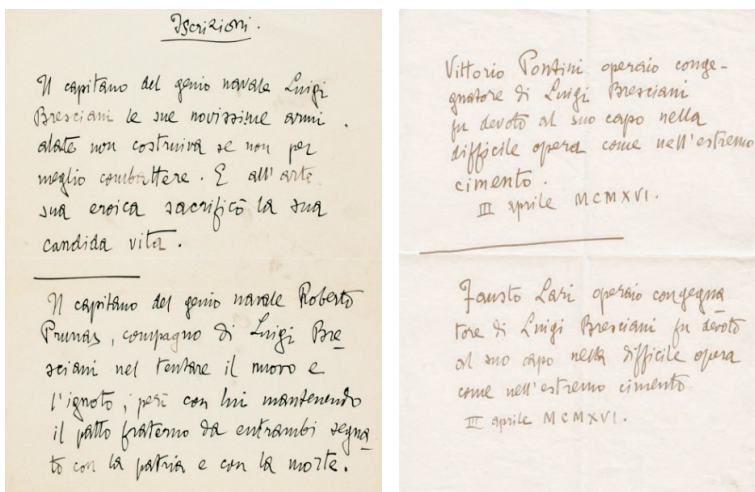 Iscrizioni.
Il capitano del genio navale Luigi
Bresciani le sue novissime armi
alate non costruiva se non per
meglio combattere. E all'arte
sua eroica sacrificò la sua
candida vita.
Il capitano del genio navale Roberto
Prunas, compagno di Luigi Bre-
sciani nel tentare il nuovo e
l'ignoto, perì con lui mantenendo
il patto fraterno da entrambi segna-
to con la patria e con la morte.
Vittorio Pontini operaio conge-
gnatore di Luigi Bresciani
fu devoto al suo capo nella
difficile opera come nell'estremo
cimento.
III aprile MCMXVI.
Fausto Lari operaio congegna
tore di Luigi Bresciani fu devoto
al suo capo nella difficile opera
come nell'estremo cimento
III aprile MCMXVI.